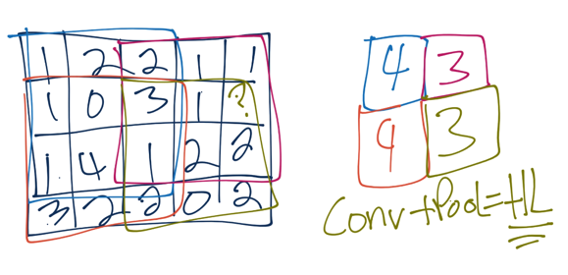 1 2 2 1 1
1 0 3 1 ?
1 4 1 2 2
3 2 2 0 2
4 3
4 3
Conv+Pool=HL